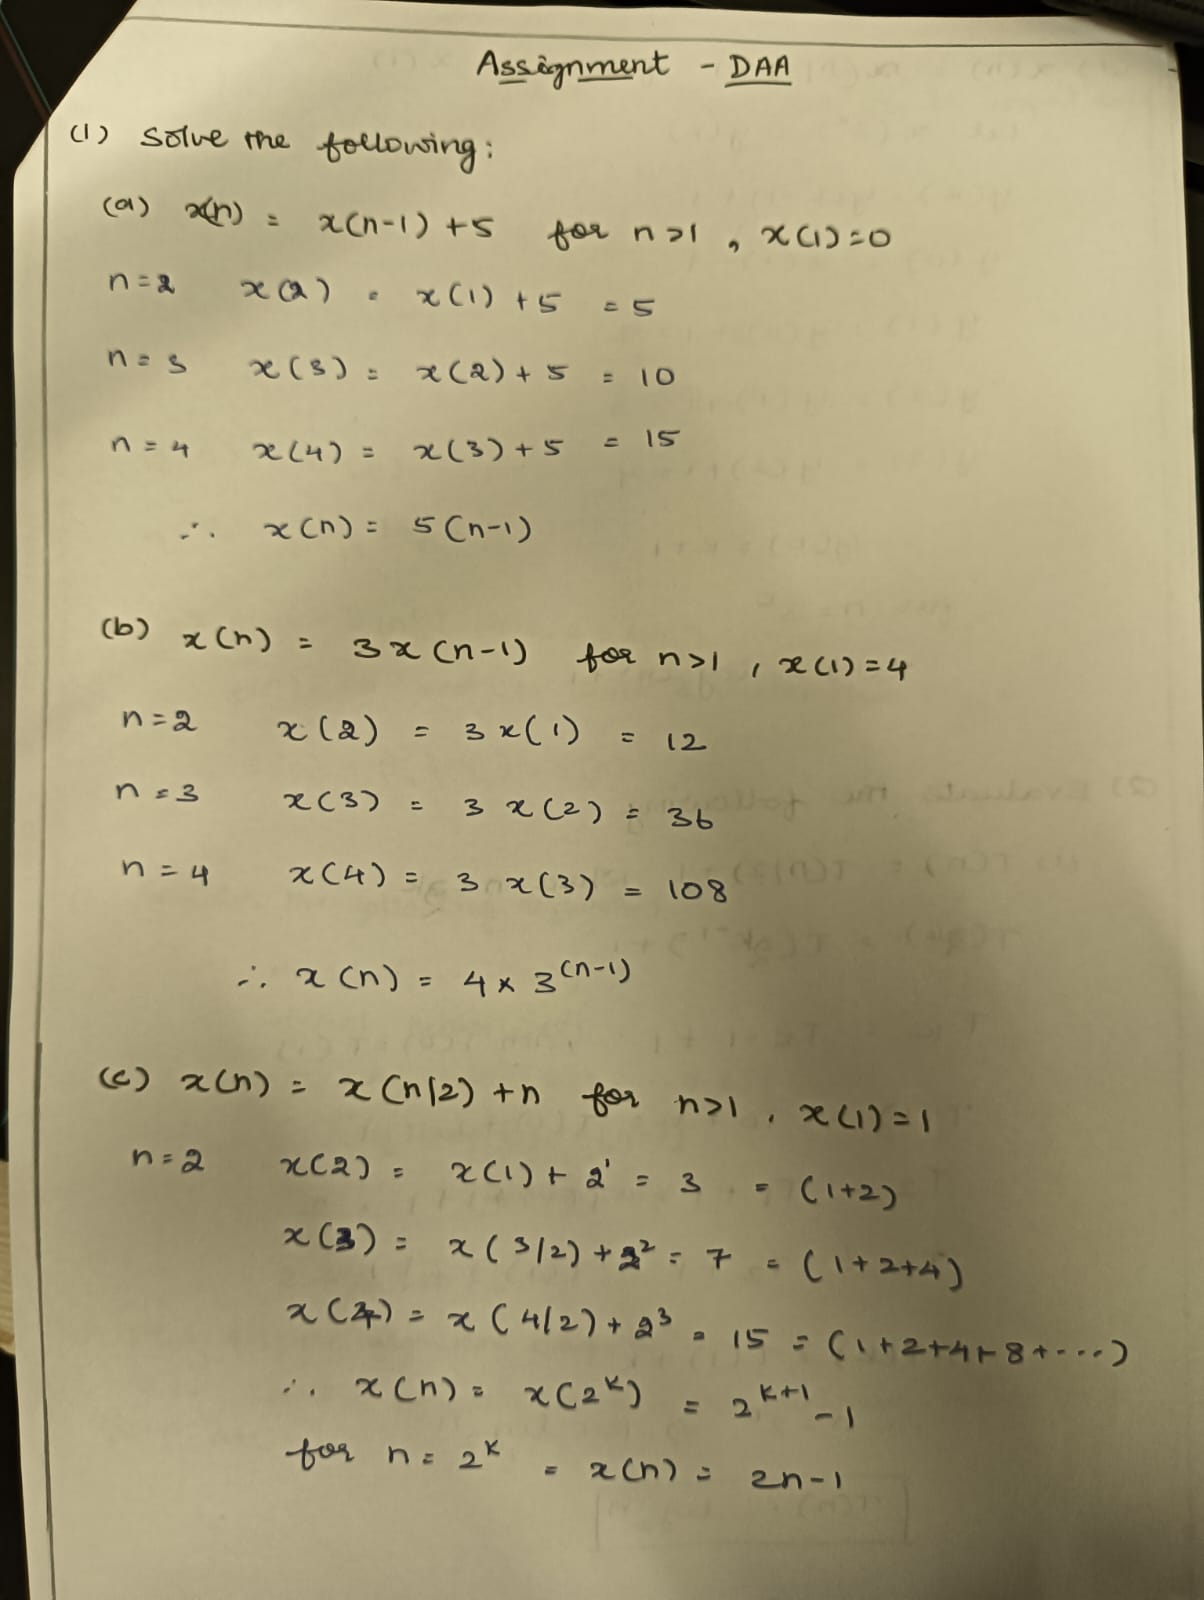 Assignment - DAA
(1) Solve the following:
(a) x(n) = x(n-1) +5 for n>1 , x(1)=0
n=2 x(2) = x(1) +5 = 5
n=3 x(3) = x(2)+5 = 10
n=4 x(4) = x(3)+5 = 15
∴ x(n) = 5(n-1)
(b) x(n) = 3x(n-1) for n>1 , x(1)=4
n=2 x(2) = 3x(1) = 12
n=3 x(3) = 3x(2) = 36
n=4 x(4) = 3x(3) = 108
∴ x(n) = 4×3^(n-1)
(c) x(n) = x(n/2) +n for n>1 , x(1)=1
n=2 x(2) = x(1)+ 2^1 = 3 = (1+2)
x(3) = x(3/2) + 2^2 = 7 = (1+2+4)
x(4) = x(4/2) + 2^3 = 15 = (1+2+4+8+....)
∴ x(n) = x(2^k) = 2^k+1 -1
for n = 2^k = x(n) = 2n-1